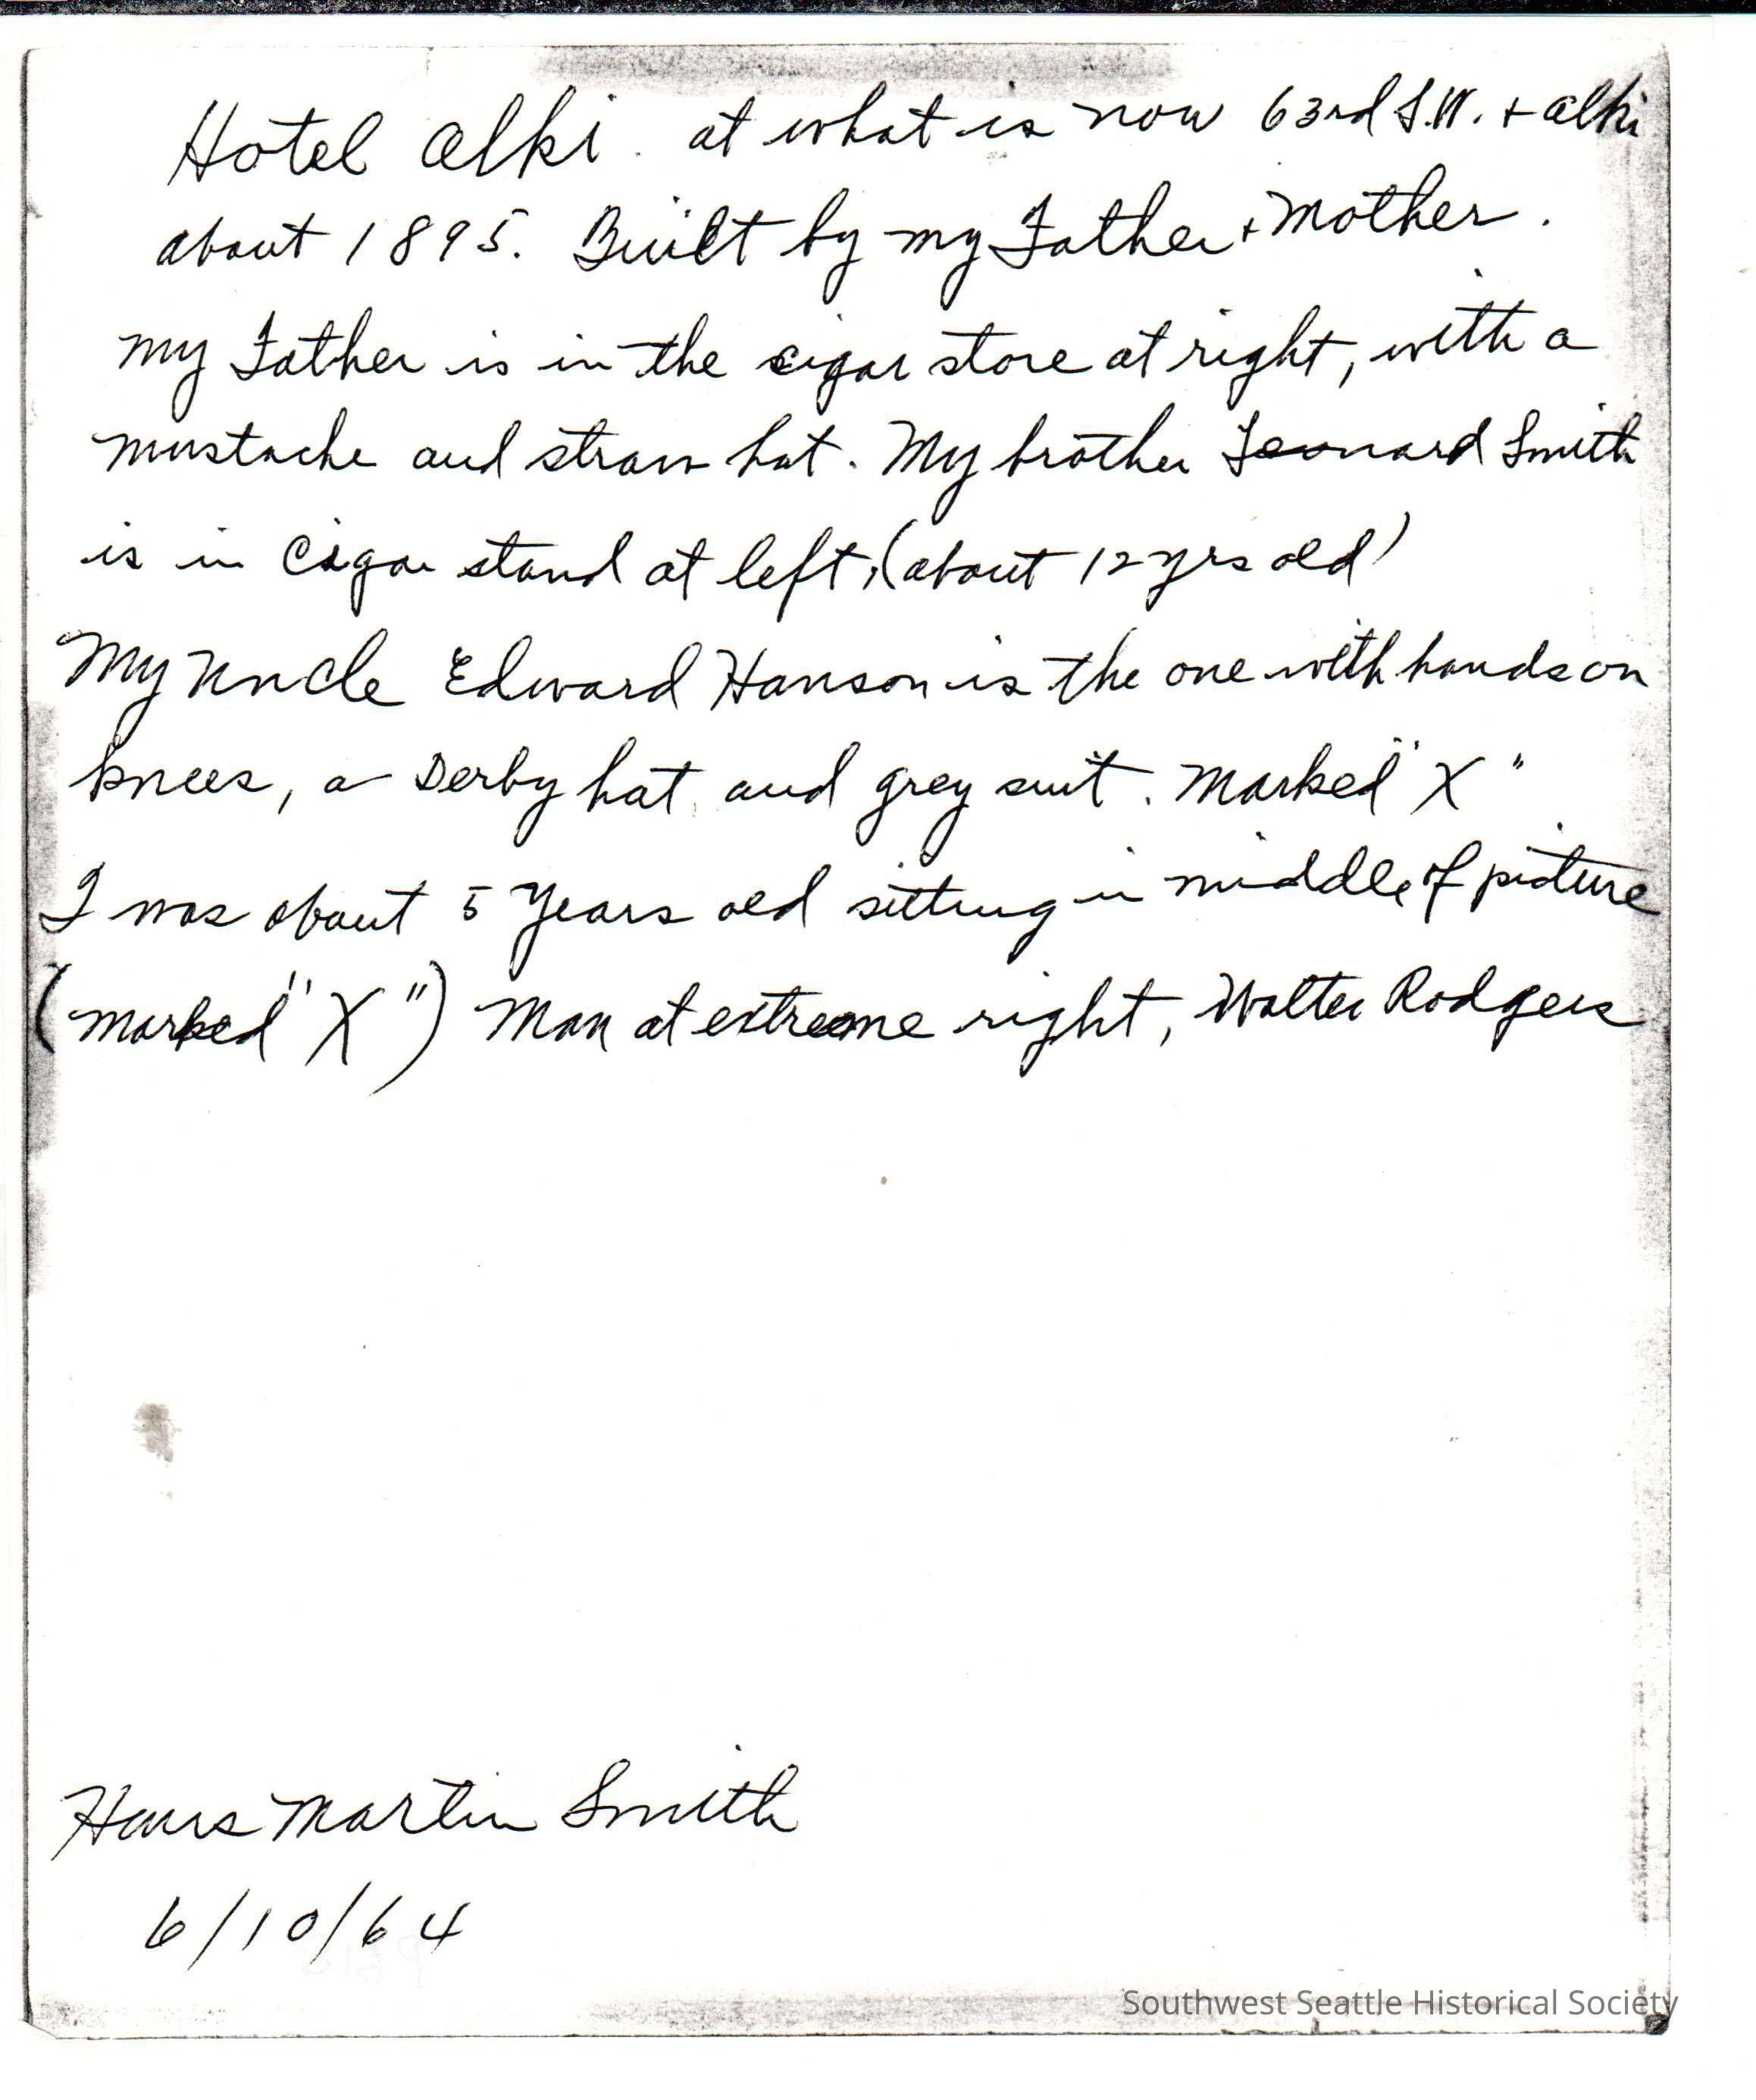 Hotel Alki. at what is now 63rd S.W. + Alki
about 1895. Built by my Father + Mother.
My Father is in the cigar store at right, with a
mustache and straw hat. My brother Leonard Smith
is in Cigar stand at left, (about 12 yrs old)
My Uncle Edward Hanson is the one with hands on
knees, a Derby hat and grey suit. Marked "X"
I was about 5 Years old sitting in middle of picture
(marked "X") Man at extreme right, Walter Rodgers
Hans Martin Smith
6/10/64
Southwest Seattle Historical Society